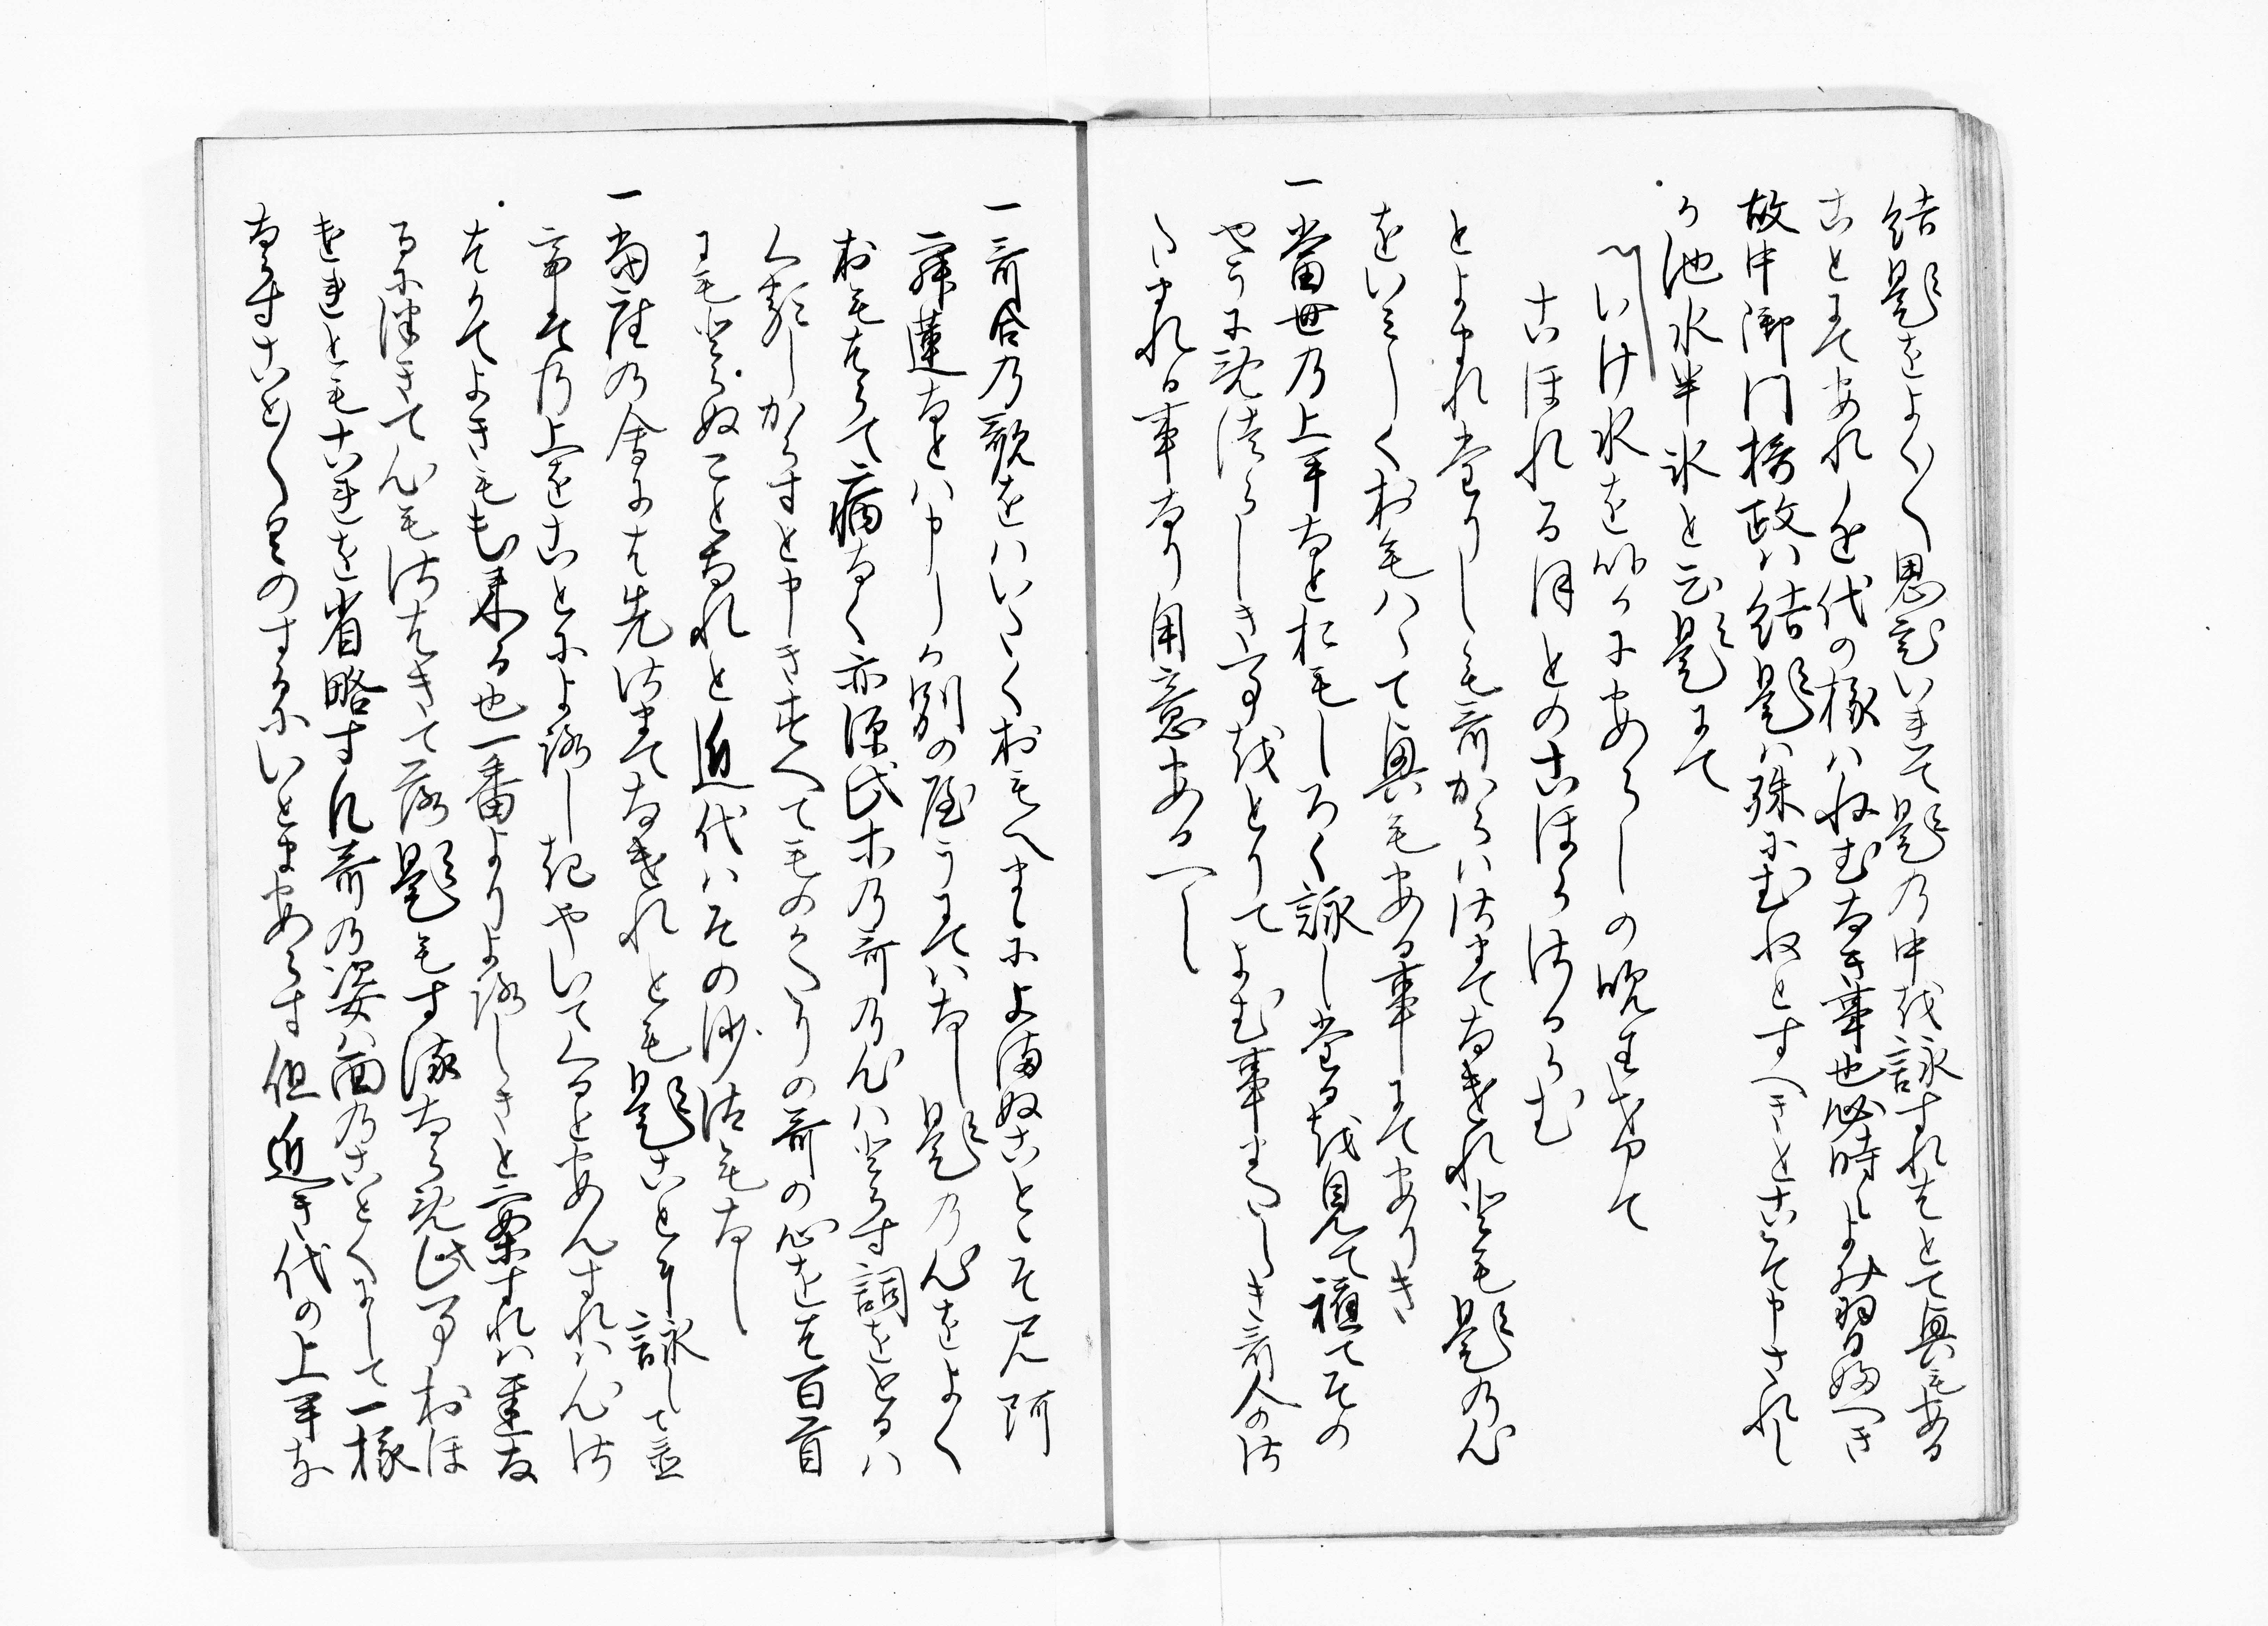 結題をよく／＼思むいれて題の中を詠すれはとて興もある
ことにてあれ近代の様はねむなき事也必時々よみ習給へき
故中御門摂政は結題は殊にむねとすへきとこそ申されし
か池水半氷と云題にて
いけ水をいかにあらしの吹わけて
こほれるほとのこほるらむ
とよまれたりしも哥からはさまてなけれとも題の心
をいみしくおもはへて興もある事にてありき
一當世の上手なとおもしろく詠したるを見て軈てその
やうに現つらしき事をとりてよむ事まつしき哥人のさ
たまれる事なり用意あるへし
一哥合の歌をはいたくおもふまゝによまぬことゝそ尺阿
寂蓮なとは申しか別の屋うにてはなし題の心をよく
おもはへて病なく亦源氏等の哥の心はとらす詞をとるは
くるしからすと申きすへてものかたりの哥の心をは百首
にもとらぬことなれと近代はその沙汰もなし
一當座の會には先さまてなけれとも題ことに詠して並
その上をことによろしきやいてくるとあんすれは心さ
はきてよきも出来る也一番よりよろしきと案すれは
るに心もさはきて落題もす此事おほ
けれともこれを省略す凡哥の姿は面のことくにして一様
ならすこと／＼く是のするにいとまあらす但近き代の上手な